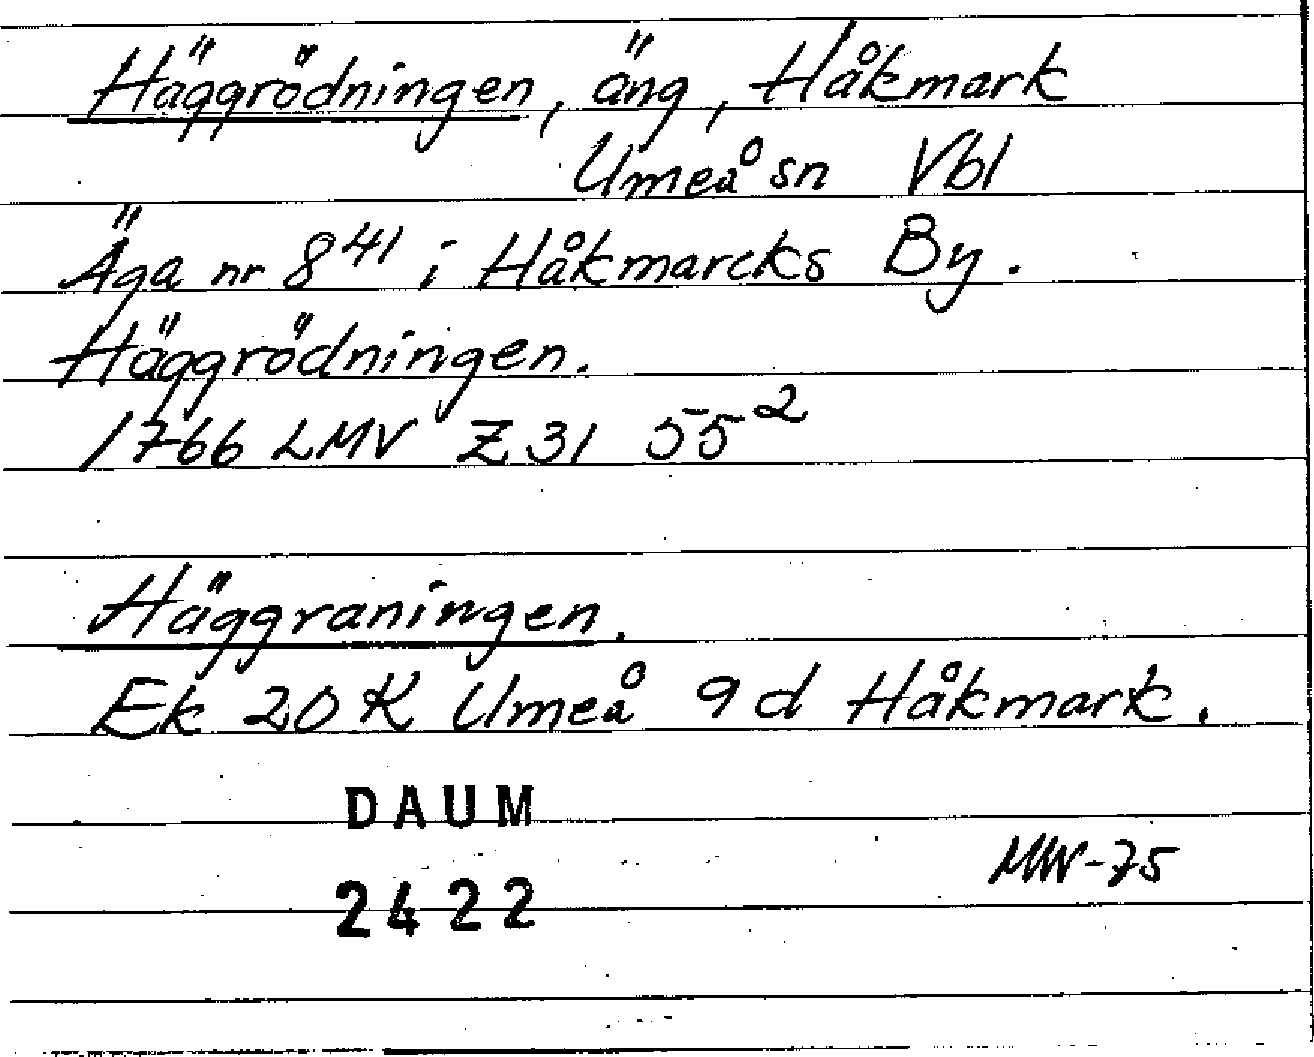 Häggrödningen, äng, Håkmark
Umeå sn Vbl
Äga nr 8⁴¹ i Håkmarcks By.
Häggrödningen.
1766 LMV Z 31 55²
Häggraningen.
Ek 20 K Umeå 9 d Håkmark.
DAUM
MW-75
2422